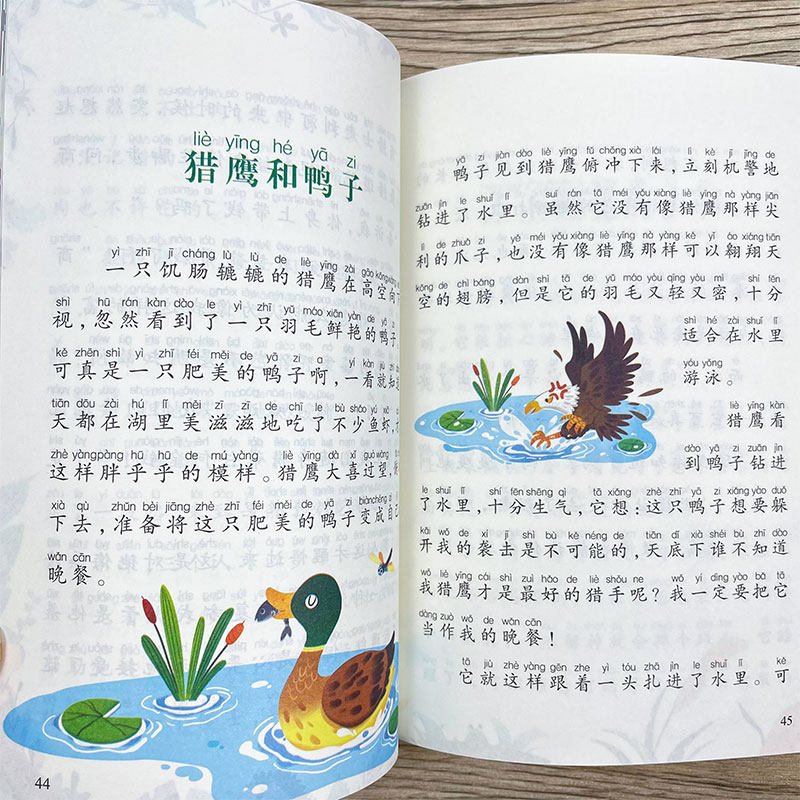 liè yīng hé yā zi
猎鹰和鸭子
yì zhī jī cháng lù lù de liè yīng zài gāo kōng
一只饥肠辘辘的猎鹰在高空间
shì hū rán kàn dào le yì zhī yǔ máo xiān yàn de yā zi
视，忽然看到了一只羽毛鲜艳的鸭子
kě zhēn shì yì zhī féi měi de yā zi a yí kàn jiù
可真是一只肥美的鸭子啊，一看就知
tiān dōu zài hú lǐ měi zī zī de chī le bù shǎo yú xiā
天都在湖里美滋滋地吃了不少鱼虾，才
zhè yàng pàng hū hū de mú yàng liè yīng dà xǐ guò wàng
这样胖乎乎的模样。猎鹰大喜过望，
xià qù zhǔn bèi jiāng zhè zhī féi měi de yā zi biàn chéng
下去，准备将这只肥美的鸭子变成自己
wǎn cān
晚餐。
44
yā zi jiàn dào liè yīng fǔ chōng xià lái lì kè jī jǐng de
鸭子见到猎鹰俯冲下来，立刻机警地
zuān jìn le shuǐ lǐ suī rán tā méi yǒu xiàng liè yīng nà yàng jiān
钻进了水里。虽然它没有像猎鹰那样尖
lì de zhuǎ zi yě méi yǒu xiàng liè yīng nà yàng kě yǐ áo xiáng tiān
利的爪子，也没有像猎鹰那样可以翱翔天
kōng de chì bǎng dàn shì tā de yǔ máo yòu qīng yòu mì shí fēn
空的翅膀，但是它的羽毛又轻又密，十分
shì hé zài shuǐ lǐ
适合在水里
yóu yǒng
游泳。
liè yīng kàn
猎鹰看
dào yā zi zuān jìn
到鸭子钻进
le shuǐ lǐ shí fēn shēng qì tā xiǎng zhè zhī yā zi xiǎng yào duǒ
了水里，十分生气，它想：这只鸭子想要躲
kāi wǒ de xí jī shì bù kě néng de tiān dǐ xià shéi bù zhī dào
开我的袭击是不可能的，天底下谁不知道
wǒ liè yīng cái shì zuì hǎo de liè shǒu ne wǒ yí dìng yào bǎ tā
我猎鹰才是最好的猎手呢？我一定要把它
dàng zuò wǒ de wǎn cān
当作我的晚餐！
tā jiù zhè yàng gēn zhe yì tóu zhā jìn le shuǐ lǐ kě
它就这样跟着一头扎进了水里。可
45